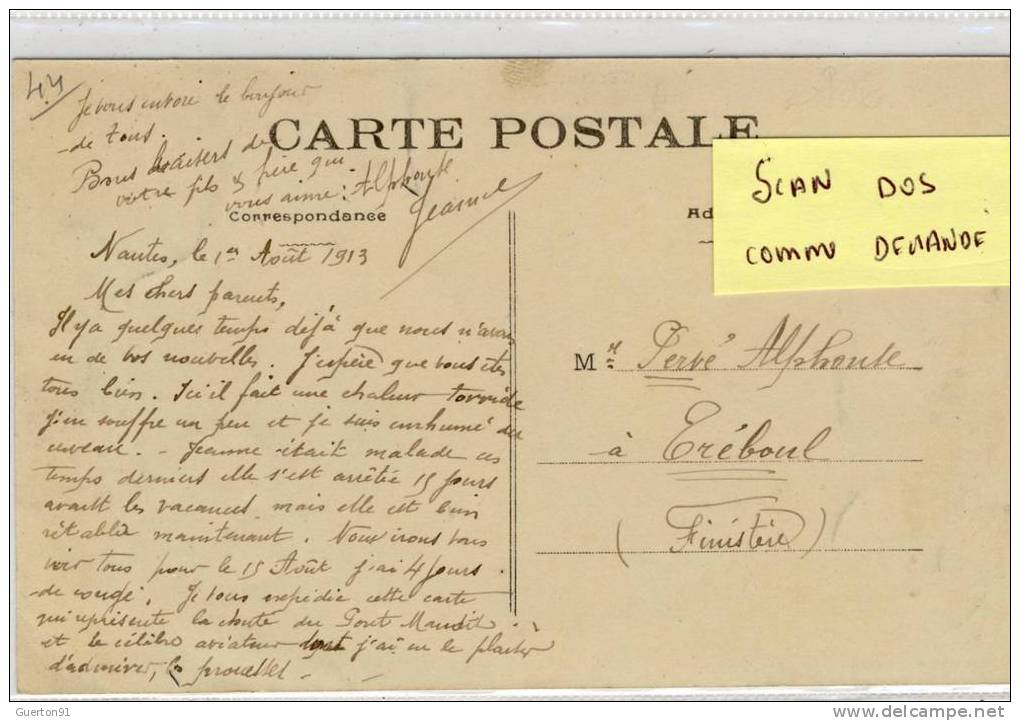 44
Je vous envoie le bonjour
de tous.
Bons baisers de
votre fils & frère qui
vous aime : Alphonse
Jeanne
CARTE POSTALE
Correspondance
Ad
SCAN DOS
COMMU DEMANDE
Nantes, le 1er Août 1913
Mes chers parents,
Il y a quelques temps déjà que nous n'avons
eu de vos nouvelles. J'espère que vous êtes
tous bien. Ici il fait une chaleur torride
j'en souffre un peu et je suis enrhumé du
cerveau. - Jeanne était malade ces
temps derniers elle s'est arrêtée 15 jours
avant les vacances, mais elle est bien
rétablie maintenant. Nous irons vous
voir tous pour le 15 Août j'ai 4 jours
de congé. Je vous expédie cette carte
qui représente la chute du Pont Maudit
et le célèbre aviateur dont j'ai eu le plaisir
d'admirer, les prouesses -
Mr Pervé Alphonse
à Tréboul
(Finistère)
Guerton91
delcampe.net